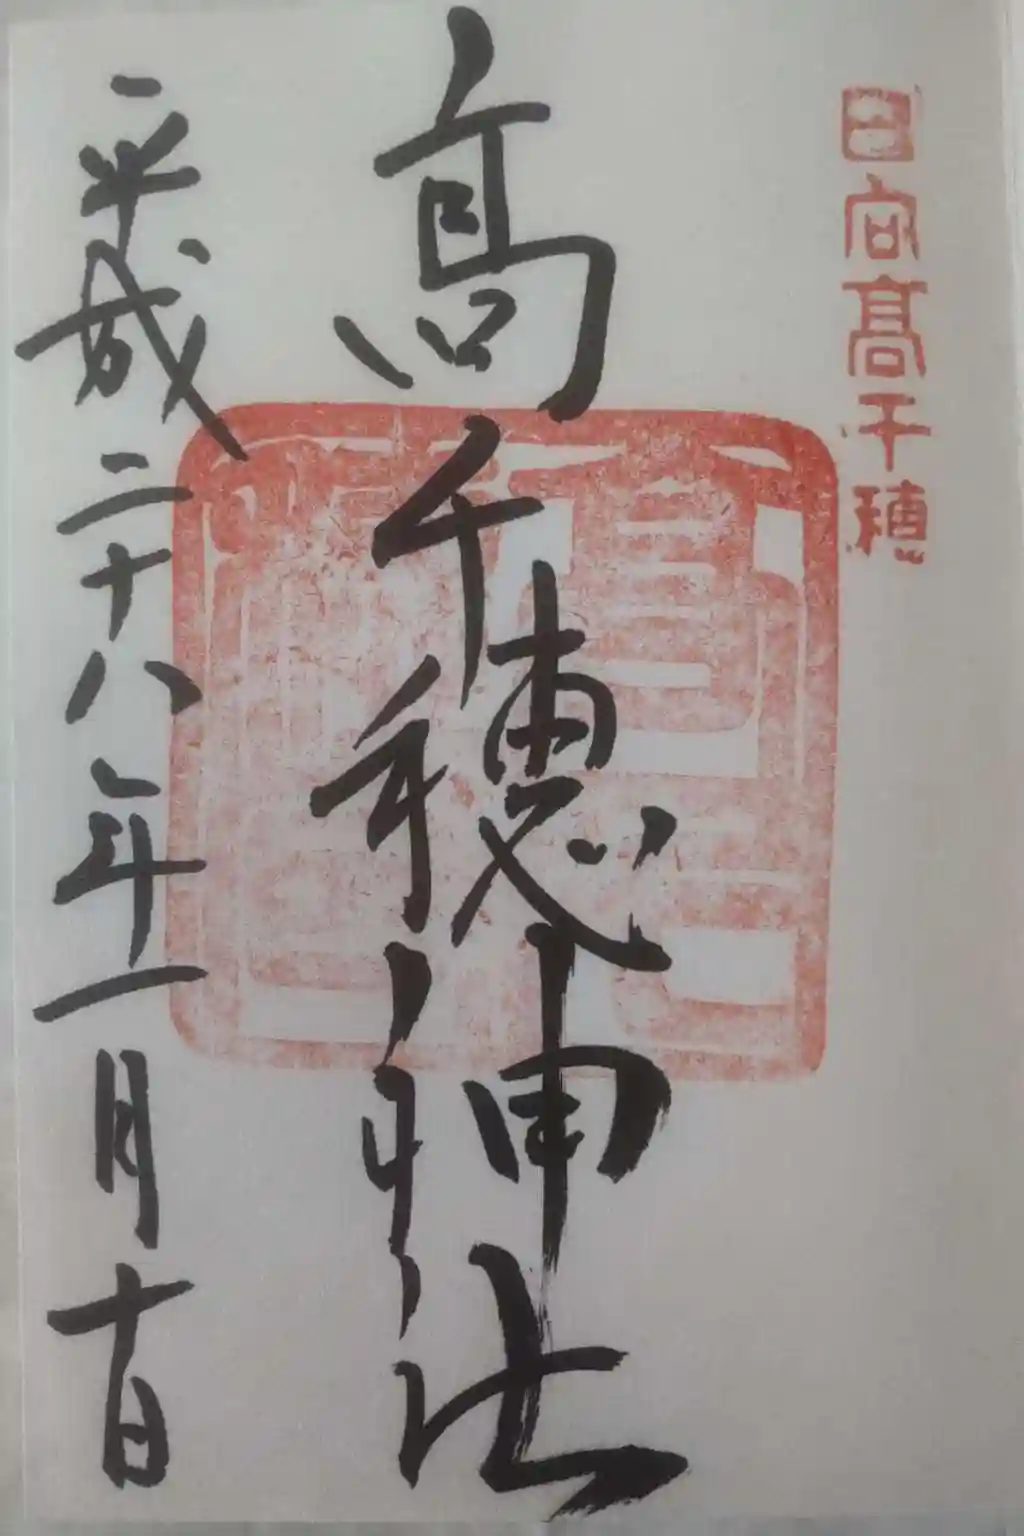 日向高千穂
高千穂神社
平成二十八年一月十日